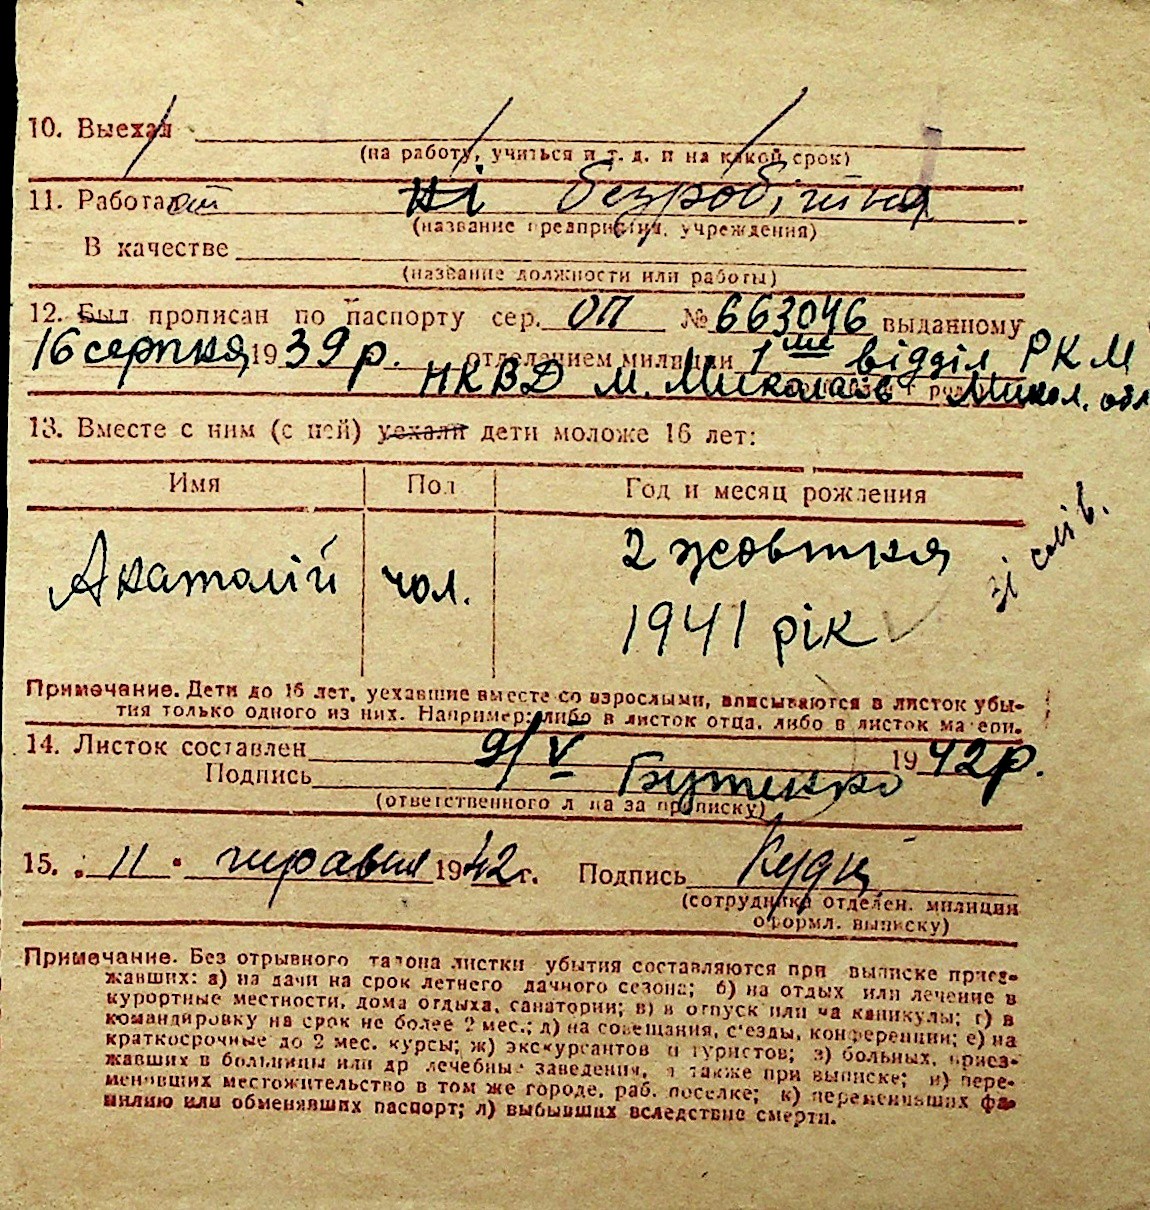 10. Выехал
(на работу, учиться и т. д. и на какой срок)
11. Работает ні безробітня
(название предприятия, учреждения)
В качестве
(название должности или работы)
12. Был прописан по паспорту сер. ОП № 663046 выданному
16 серпня 1939 р. отделением милиции 1ше відділ РКМ
НКВД м. Миколаєв Микол. обл
13. Вместе с ним (с ней) уехали дети моложе 16 лет:
Имя Пол Год и месяц рождения
Анатолій чол. 2 жовтня
1941 рік
Примечание. Дети до 16 лет, уехавшие вместе со взрослыми, вписываются в листок убы-
тия только одного из них. Например: либо в листок отца, либо в листок матери.
14. Листок составлен 9/V 1942 р.
Подпись Бутенко
(ответственного лица за прописку)
15. „11" травня 1942 г. Подпись
(сотрудника отделен. милиции
оформл. выписку)
Примечание. Без отрывного талона листки убытия составляются при выписке приез-
жавших: а) на дачи на срок летнего дачного сезона; б) на отдых или лечение в
курортные местности, дома отдыха, санатории; в) в отпуск или на каникулы; г) в
командировку на срок не более 2 мес.; д) на совещания, с'езды, конференции; е) на
краткосрочные до 2 мес. курсы; ж) экскурсантов и туристов; з) больных, приез-
жавших в больницы или др лечебные заведения, а также при выписке; и) пере-
менивших местожительство в том же городе, раб. поселке; к) переменивших фа-
милию или обменявших паспорт; л) выбывших вследствие смерти.